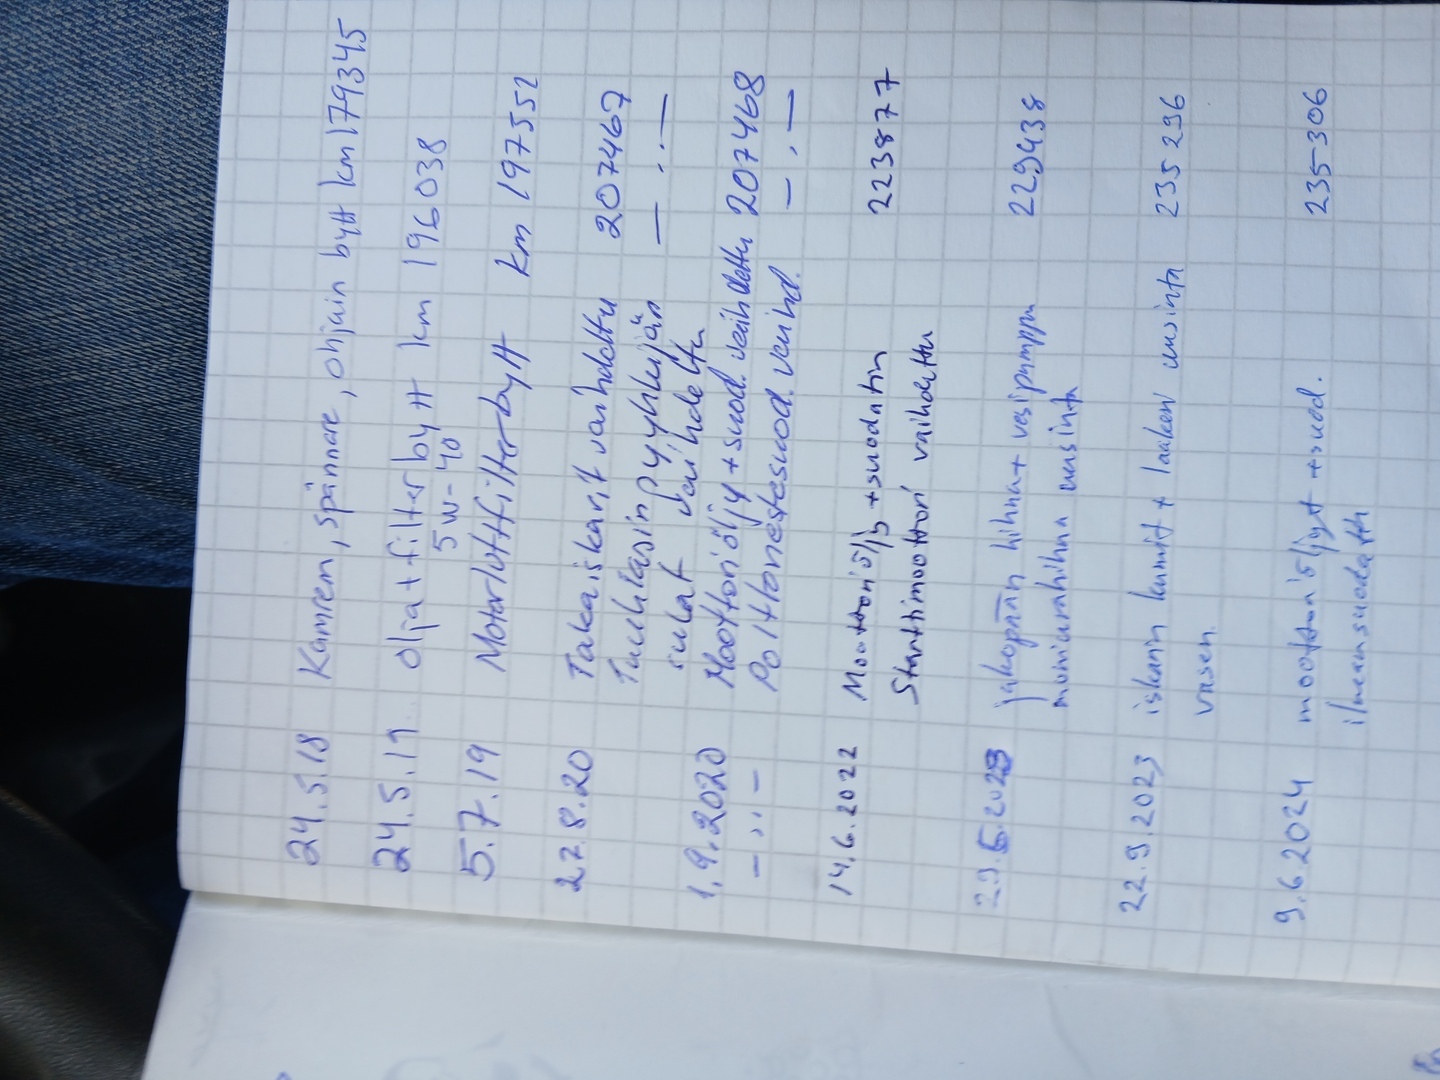 24.5.18 Kamrem, spännare, ohjain bytt km 179345
24.5.19 Olja+filter bytt km 196038
5w-40
5.7.19 Motorluftfilter bytt km 197552
27.8.20 Takaiskarit vaihdettu 207467
Tuulilasinpyyhkijän — . . —
sulat vaihdettu
1.9.2020 Moottoriöljy+suod. vaihdettu 207468
— ,, — Polttonestesuod. vaihd. — , —
14.6.2022 Moottoriöljy+suodatin 223877
Starttimoottori vaihdettu
29.5.2023 jakopään hihna+ vesipumppu 229438
moniurahihna uusinta
22.9.2023 iskarin kumit + laakeri uusinta 235 296
vasen
9.6.2024 moottoriöljyt +suod. 235-306
ilmansuodatin